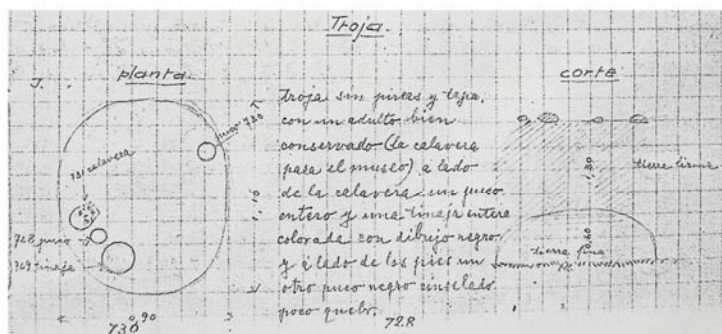 Troja.
J.
planta.
corte
puco 730
731 calavera
728 puco
729 tinaja
1,10
0,90
730
troja sin pircas y tapa.
con un adulto bien
conservado (la calavera
pasa el museo) a lado
de la calavera un puco
entero y una tinaja entera
colorada con dibujo negro
y a lado de los pies un
otro puco negro cinselado
poco quebr.
728
1,20
0,60
tierra fina